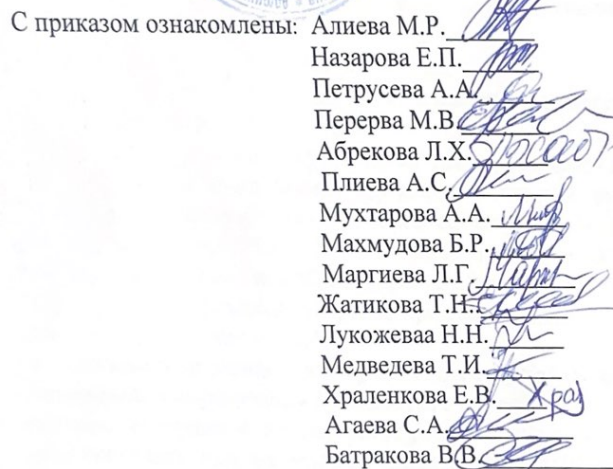 С приказом ознакомлены: Алиева М.Р.
Назарова Е.П.
Петрусева А.А.
Перерва М.В.
Абрекова Л.Х.
Плиева А.С.
Мухтарова А.А.
Махмудова Б.Р.
Маргиева Л.Г.
Жатикова Т.Н.
Лукожеваа Н.Н.
Медведева Т.И.
Храленкова Е.В. Храл
Агаева С.А.
Батракова В.В.